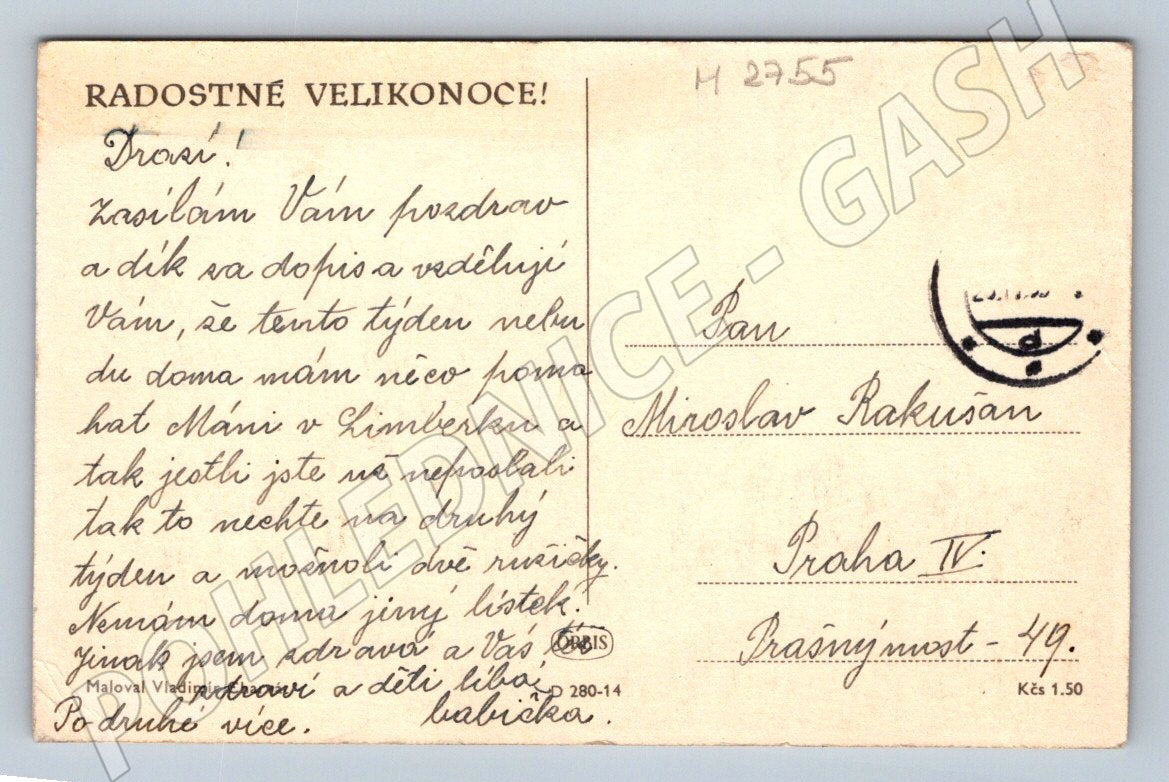 RADOSTNÉ VELIKONOCE!
Drazí!
Zasílám Vám pozdrav
a dík za dopis a vzděluji
Vám, že tento týden nebu
du doma mám něco poma
hat Máni v Limberku a
tak jestli jste už neposlali
tak to nechte na druhý
týden a možnoli dvě ružičky.
Nemám doma jiný lístek.
Jinak jsem zdravá a Vás
zdraví a děti líbá
babička.
Po druhé více.
Maloval
ORBIS
D 280-14
M 2755
d
Pan
Miroslav Rakušan
Praha IV.
Prašný most - 49.
Kčs 1.50
POHLEDNICE - GASH